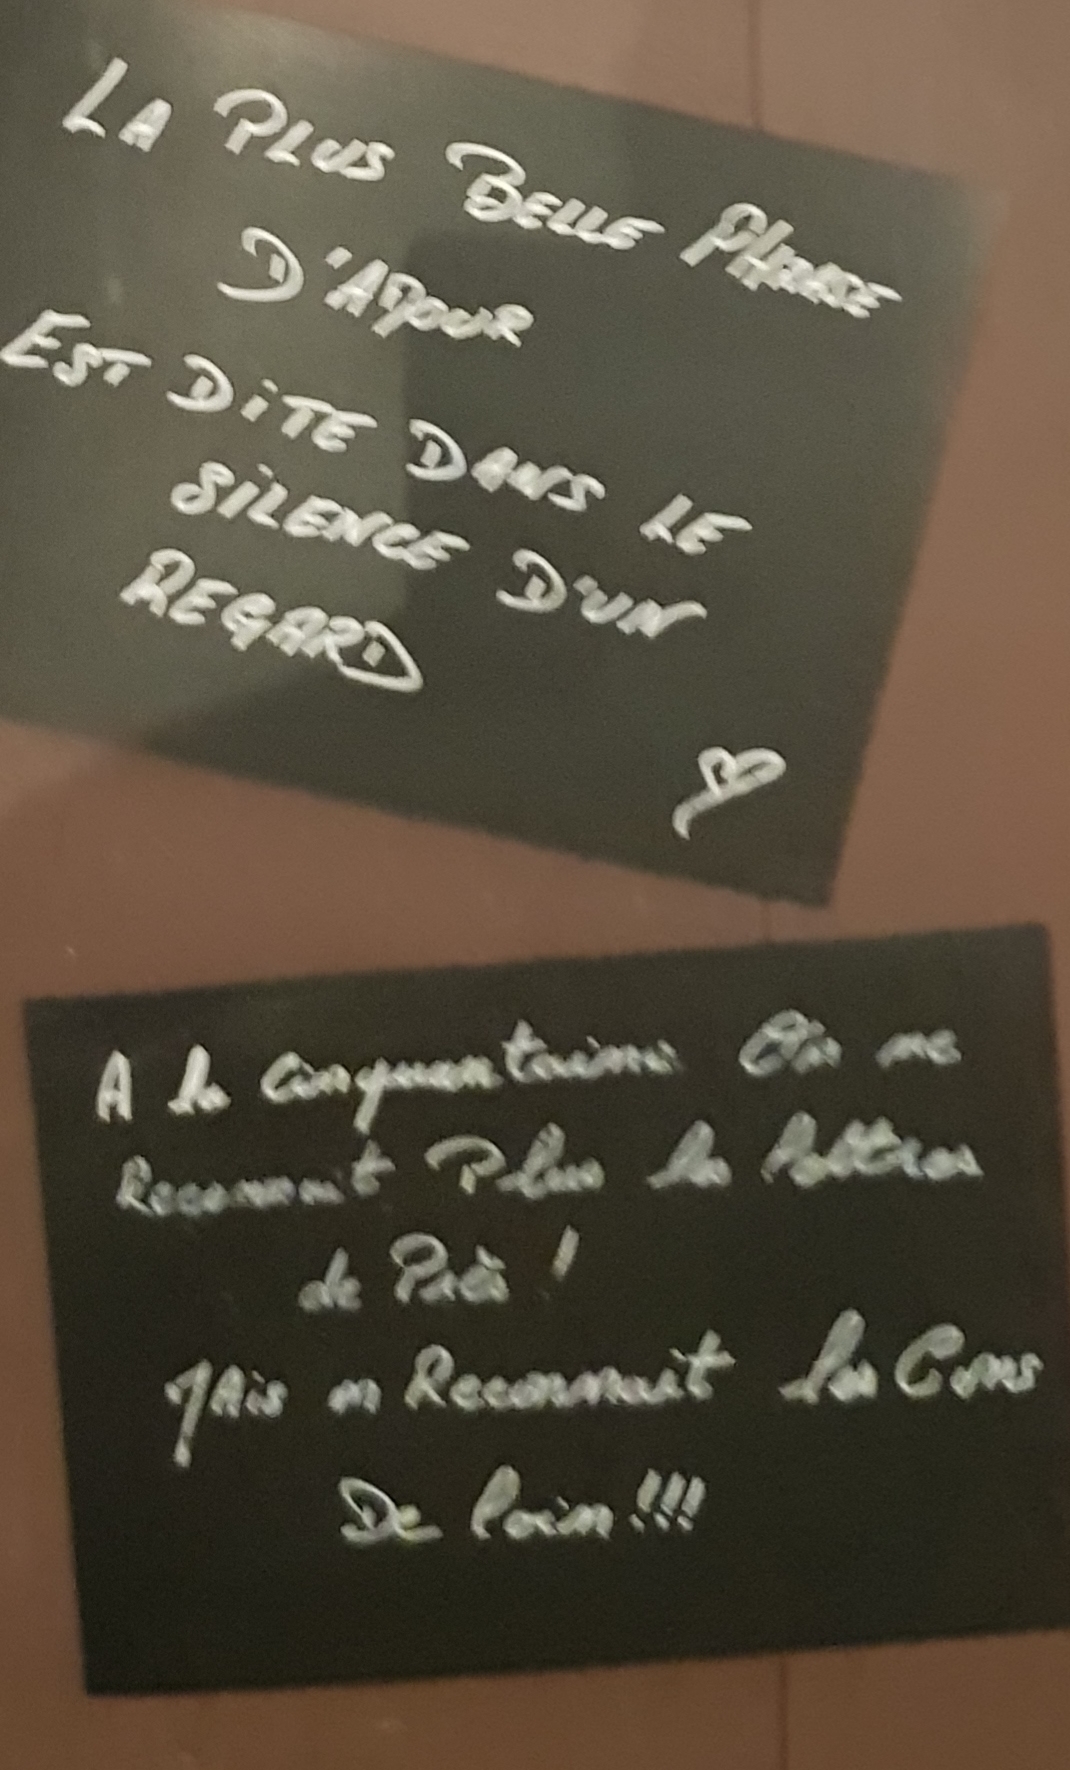 LA PLUS BELLE PHRASE
D'AMOUR
EST DiTE DANS LE
SiLENCE D'UN
REGARD
A la cinquantaine On ne
Reconnait Plus les lettres
de Près !
Mais on Reconnait les Cons
De loin !!!